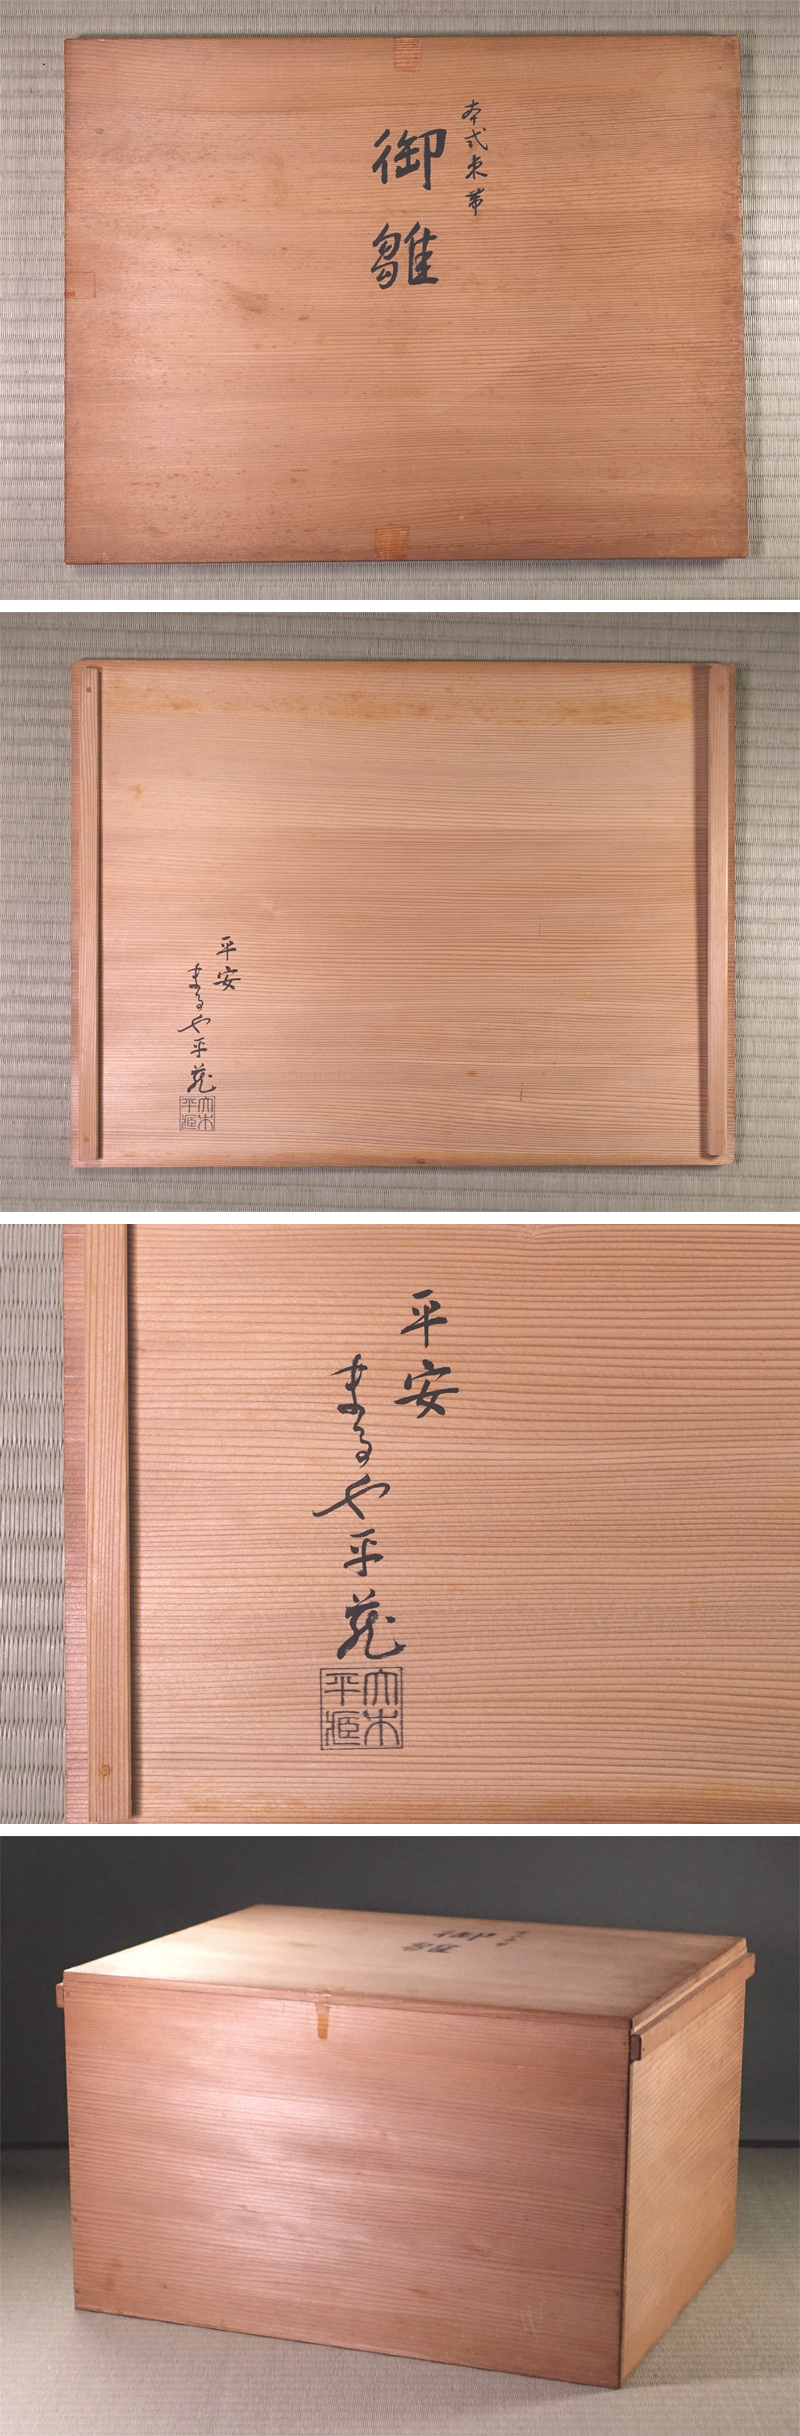 本式束帯
御雛
平安
まるや平蔵
大木
平蔵
平安
まるや平蔵
大木
平蔵
御雛